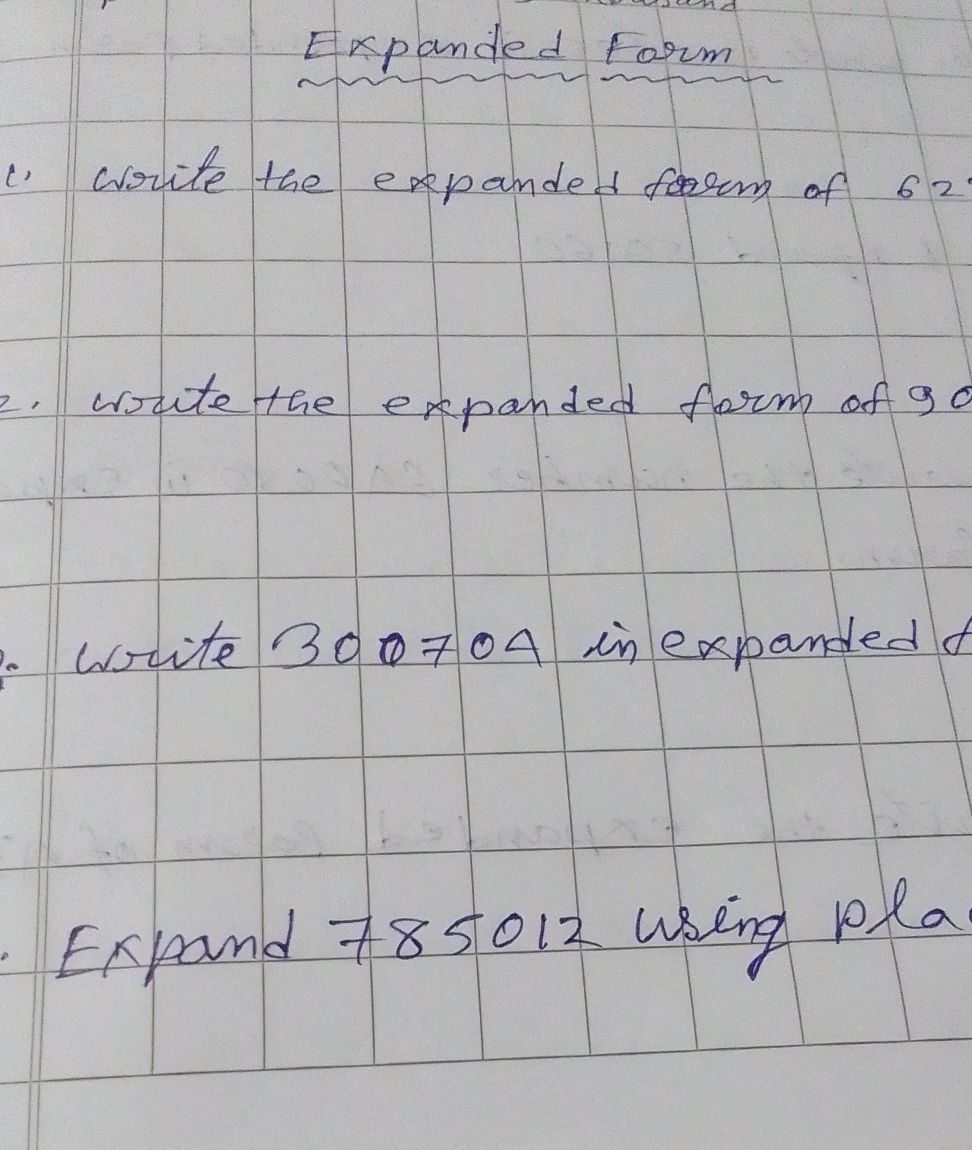 Expanded Form
1. Write the expanded form of 62
2. Write the expanded form of 90
Write 300704 in expanded f
Expand 785012 using pla